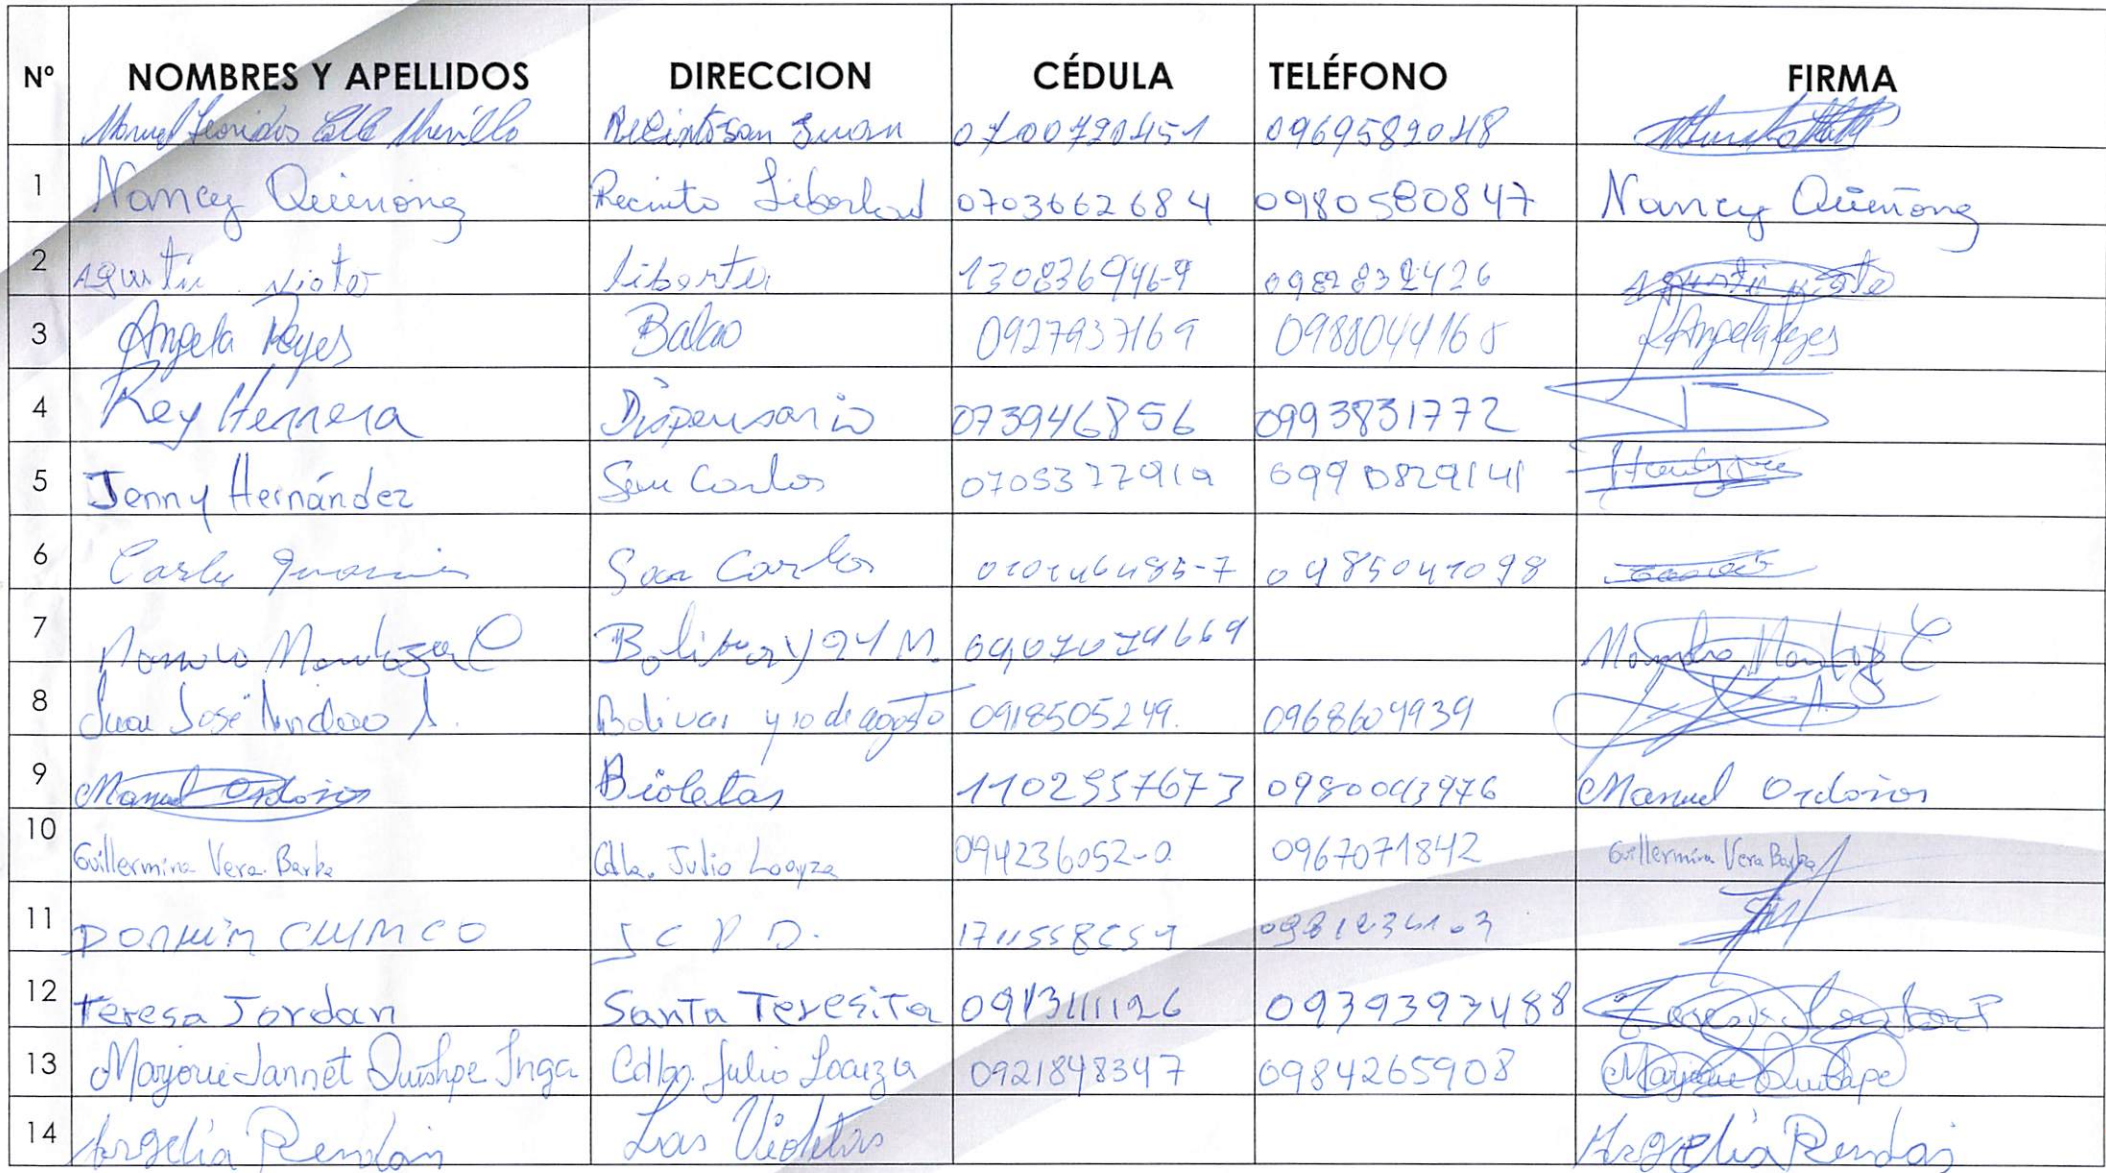 Nº NOMBRES Y APELLIDOS DIRECCION CÉDULA TELÉFONO FIRMA
Manuel Leonidas Calle Murillo Recinto San Juan 0700720451 0969582048
1 Nancy Quiñonz Recinto Libertad 0703662684 0980580847 Nancy Quiñonz
2 Agustin liberta 130836946-9 0982832426 Agustin
3 Angela Reyes Balao 0927937169 0988044168 Angela Reyes
4 Rey Herrera Dispensario 0739468856 0993831772
5 Jenny Hernández San Carlos 0705377919 0990829141
6 San Carlos 0985041098
7 Mendoza C Bolivar y 24 M.
8 Juan José A. Bolivar y 10 de agosto 0918505249. 0968604939
9 Manuel Ordoñes Bioletas 1102557673 0980043976 Manuel Ordoñes
10 Guillermina Vera Barba Cdla. Julio Loayza 094236052-0 0967071842 Guillermina Vera Barba
11
12 Teresa Jordan Santa Teresita 0913111126 0939393488
13 Marjorie Jannet Quishpe Inga Cdla. Julio Loaiza 0921848347 0984265908 Marjorie Quishpe
14 Argelia Rendón Las Violetas Argelia Rendón